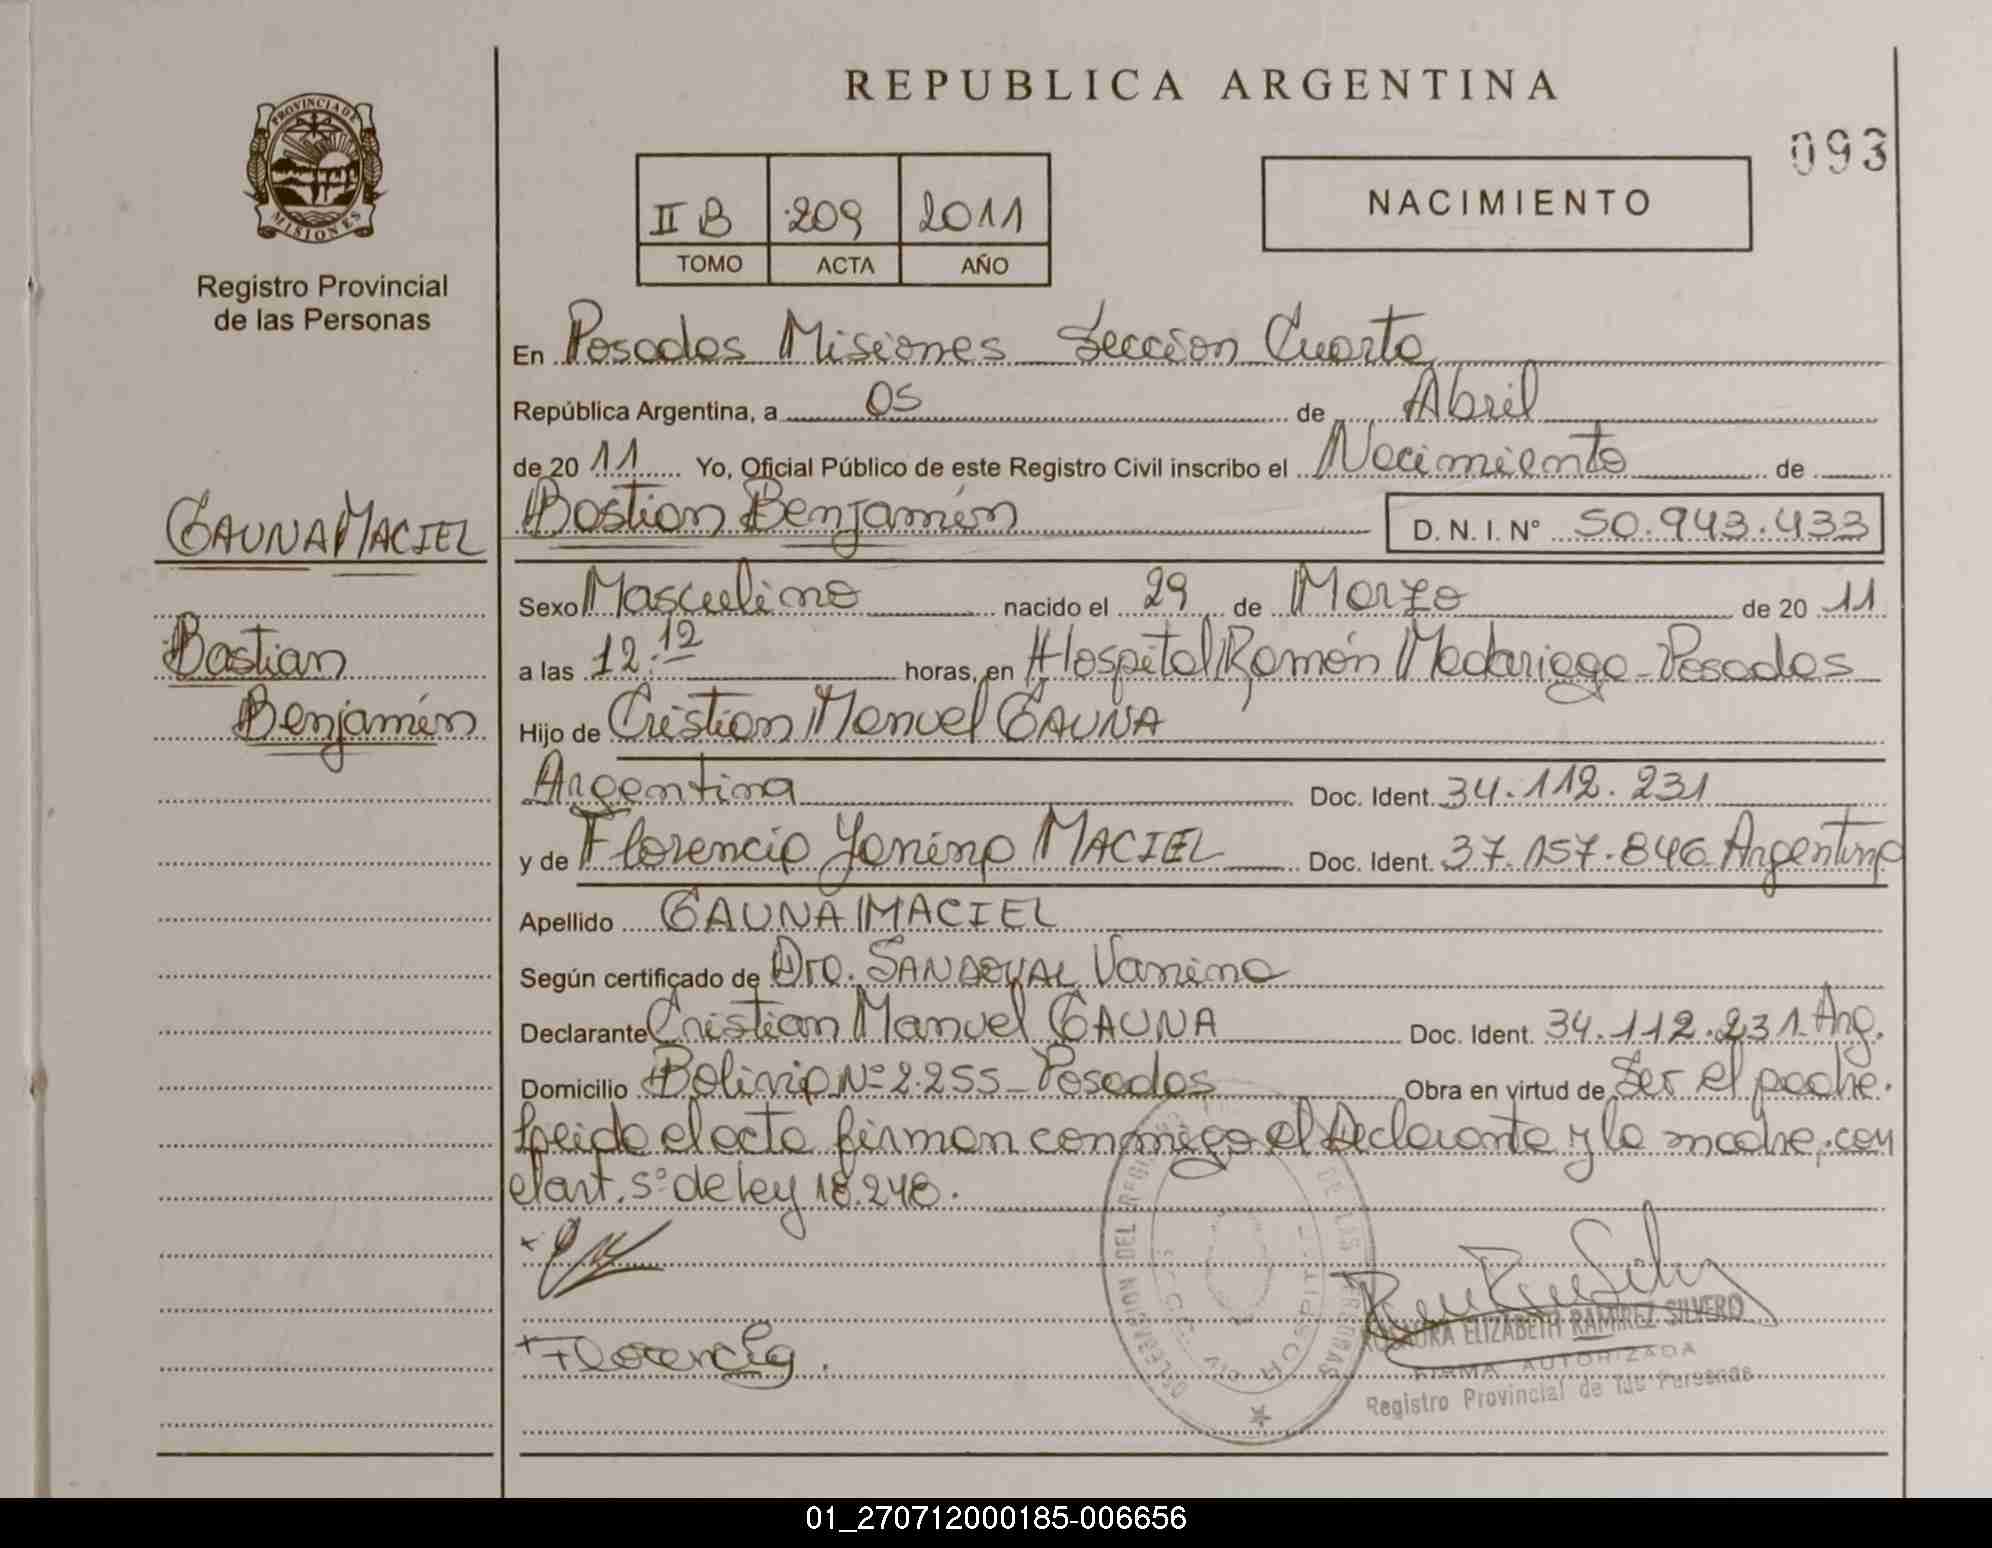 REPUBLICA ARGENTINA
093
PROVINCIA DE
MISIONES
Registro Provincial
de las Personas
II B 209 2011
TOMO ACTA AÑO
NACIMIENTO
En Posadas Misiones Seccion Cuarta
República Argentina, a 05 de Abril
de 20 11 Yo, Oficial Público de este Registro Civil inscribo el Nacimiento de
GAUNA MACIEL
Bastian Benjamín D. N. I. N° 50.943.433
Sexo Masculino nacido el 29 de Marzo de 20 11
Bastian
Benjamín
a las 12:12 horas, en Hospital Ramón Madariaga - Posadas
Hijo de Cristian Manuel GAUNA
Argentina Doc. Ident. 34.112.231
y de Florencia Yanina MACIEL Doc. Ident. 37.157.846 Argentina
Apellido GAUNA MACIEL
Según certificado de Dra. SANDOVAL Vanina
Declarante Cristian Manuel GAUNA Doc. Ident. 34.112.231 Arg.
Domicilio Bolivia Nº 2.255 - Posadas Obra en virtud de Ser el padre.
Leida el acta firman conmigo el Declarante y la madre, con
el art. 5º de ley 18.248.
x
x Florencia.
DELEGACION DEL REGISTRO DE LAS PERSONAS
HOSPITAL
ROSAURA ELIZABETH RAMIREZ SILVERO
FIRMA AUTORIZADA
Registro Provincial de las Personas
01_270712000185-006656